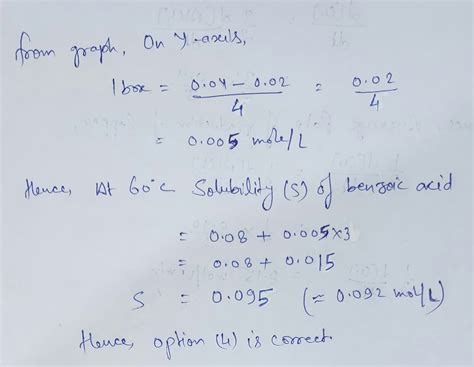 from graph, On Y-axis,
1 box = 0.04 - 0.02 / 4 = 0.02 / 4
= 0.005 mole/L
Hence, At 60°C Solubility (S) of benzoic acid
= 0.08 + 0.005×3
= 0.08 + 0.015
S = 0.095 (≈ 0.092 mol/L)
Hence, option (4) is correct.